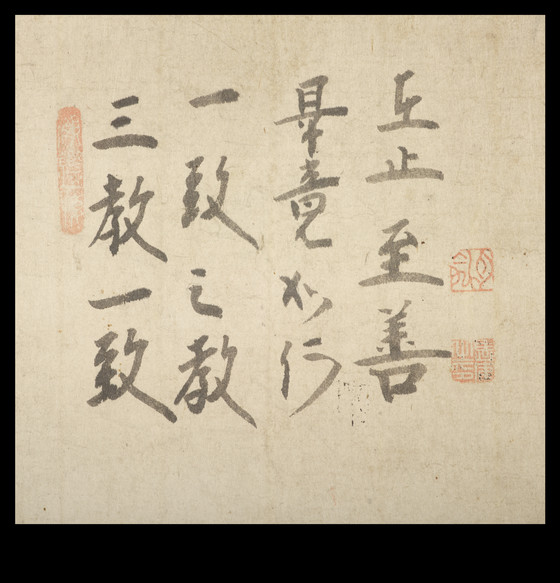 三教一致
一致之教
畢竟如何
在止至善